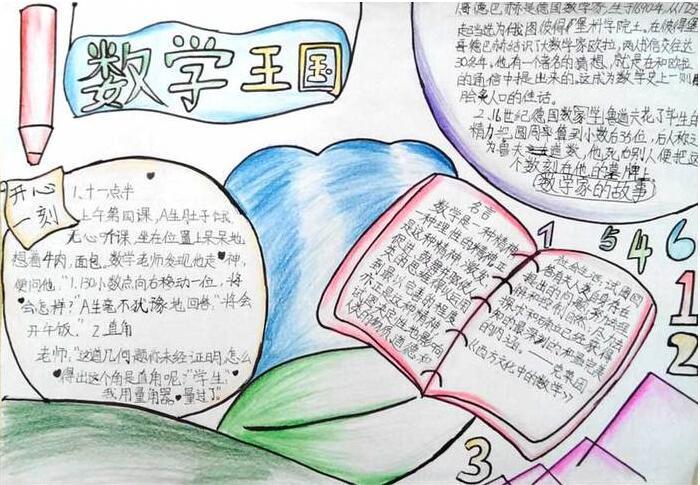 数学王国
开心
一刻
1.十一点半
上午第四课,A生肚子饿,
无心听课,坐在位置上呆呆地
想着牛肉,面包。数学老师发现他走神,
便问他,"1.130小数点向右移动一位,将
会怎样?"A生毫不犹豫地回答:"将会
开午饭。"2.直角
老师:"这道几何题你未经证明,怎么
得出这个角是直角呢?"学生:"
我用量角器量过了。
哥德巴赫是德国数学家,生于1690年,从1725
起当选为俄国彼得堡科学院院士。在彼得堡
哥德巴赫结识了大数学家欧拉,两人书信交往达
30多年。他有一个著名的猜想,就是在和欧拉
的通信中提出来的。这成为数学史上一则
脍炙人口的佳话。
2.16世纪德国数学家鲁道夫花了毕生的
精力,把圆周率算到小数后35位,后人称之
为鲁道夫数,他死后别人便把这
个数刻在他的墓碑上。
(数学家的故事)
名言
数学是一种精神,
一种理性的精神。正
是这种精神,激发、
促进、鼓舞并驱使人
类的思维得以运用
到最完善的程度,
亦正是这种精神,
试图决定性地影响
人类的物质、道德和
社会生活;试图回
答有关人类自身存在
提出的问题;努力去理
解和控制自然;尽力去
探求和确立已经获得
知识的最深刻的和最完美
的内涵。——克莱因
《西方文化中的数学》
1
5
4
6
1
2
3